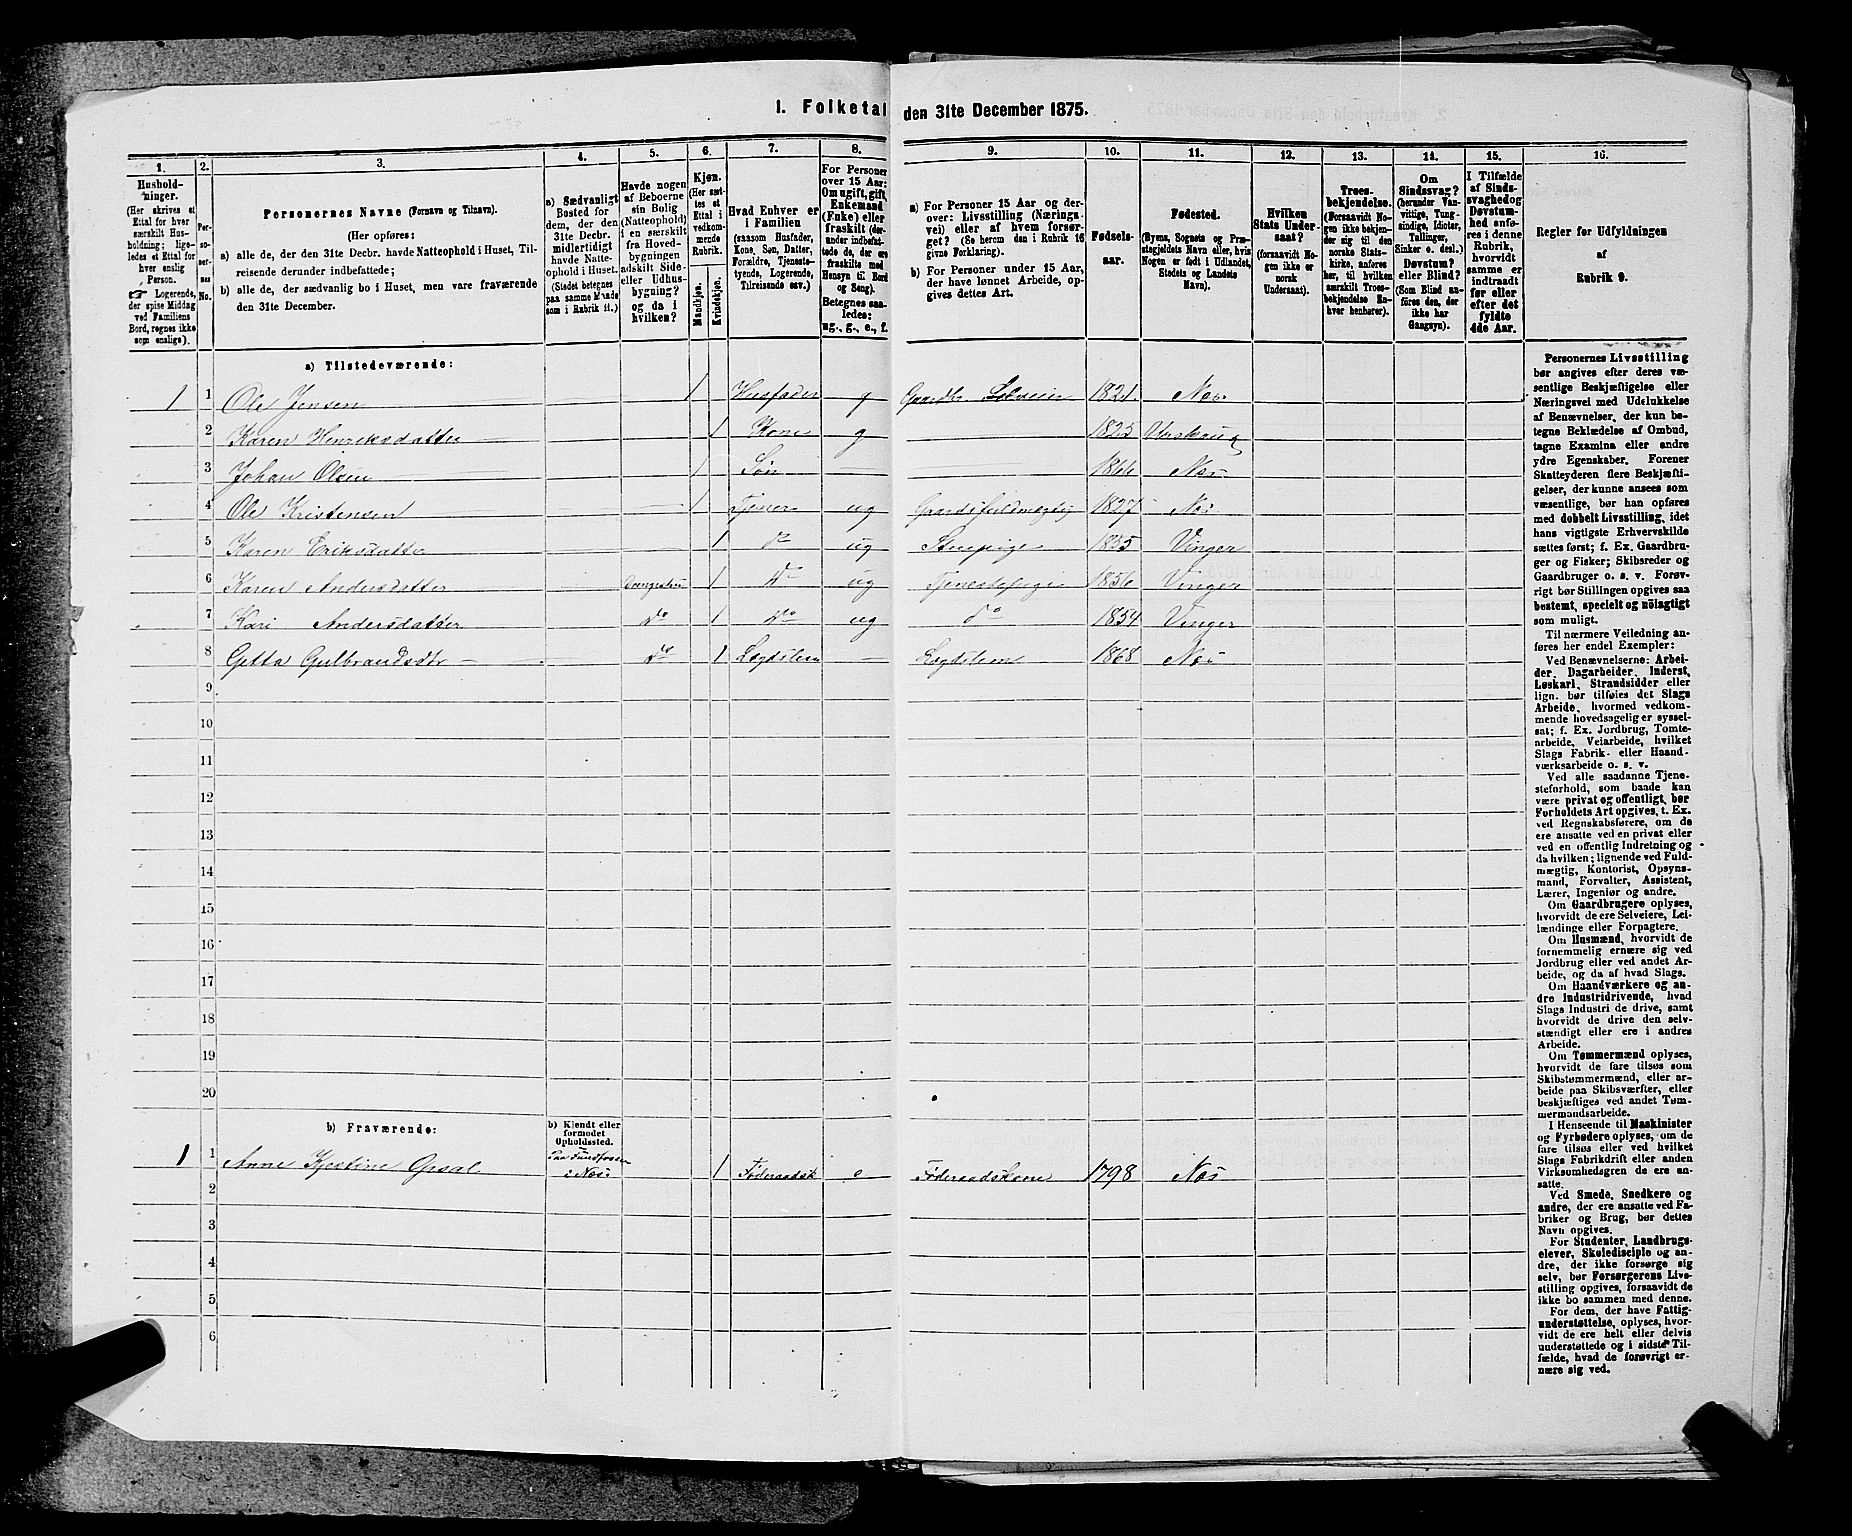 1. Folketal den 31te December 1875.
1. 2. 3. 4. 5. 6. 7. 8. 9. 10. 11. 12. 13. 14. 15. 16.
Hushold-
ninger.
(Her skrives et
Ettal for hver
særskilt Hus-
holdning; lige-
ledes et Ettal for
hver enslig
Person.
☞ Logerende,
der spise Middag
ved Familiens
Bord, regnes ikke
som enslige).
Per-
so-
ner-
nes
No.
Personernes Navne (Fornavn og Tilnavn).
(Her opføres:
a) alle de, der den 31te Decbr. havde Natteophold i Huset, Til-
reisende derunder indbefattede;
b) alle de, der sædvanlig bo i Huset, men vare fraværende
den 31te December.
a) Sædvanligt
Bosted for
dem, der den
31te Decbr.
midlertidigt
havde Natte-
ophold i Huset.
(Stedet betegnes
paa samme Maade
som i Rubrik 11.)
Havde nogen
af Beboerne
sin Bolig
(Natteophold)
i en særskilt
fra Hoved-
bygningen
adskilt Side-
eller Udhus-
bygning?
og da i
hvilken?
Kjøn.
(Her sæt-
tes et
Ettal i
vedkom-
mende
Rubrik.
Mandkjøn.
Kvindekjøn.
Hvad Enhver er
i Familien
(saasom Husfader,
Kone, Søn, Datter,
Forældre, Tjeneste-
tyende, Logerende,
Tilreisende osv.)
For Personer
over 15 Aar:
Om ugift, gift,
Enkemand
(Enke) eller
fraskilt (der-
under indbefat-
tede de, der ere
fraskilte med
Hensyn til Bord
og Seng).
Betegnes saa-
ledes:
ug., g., e., f.
a) For Personer 15 Aar og der-
over: Livsstilling (Nærings-
vei) eller af hvem forsør-
get? (Se herom den i Rubrik 16
givne Forklaring).
b) For Personer under 15 Aar,
der have lønnet Arbeide, op-
gives dettes Art.
Fødsels-
aar.
Fødested.
(Byens, Sognets og Præ-
stegjeldets Navn eller, hvis
Nogen er født i Udlandet,
Stedets og Landets
Navn).
Hvilken
Stats Under-
saat?
(forsaavidt No-
gen ikke er
norsk
Undersaat).
Troes-
bekjendelse.
(Forsaavidt No-
gen ikke bekjen-
der sig til den
norske Stats-
kirke, anføres
her, til hvilken
særskilt Troes-
bekjendelse En-
hver henhører).
Om
Sindssvag?
(herunder Van-
vittige, Tung-
sindige, Idioter,
Tullinger,
Sinker o. desl.)
Døvstum?
eller Blind?
(Som Blind an-
føres den, der
ikke har
Gangsyn).
I Tilfælde
af Sinds-
svaghed og
Døvstum-
hed anfø-
res i denne
Rubrik,
hvorvidt
samme er
indtraadt
før eller
efter det
fyldte
4de Aar.
Regler for Udfyldningen
af
Rubrik 9.
a) Tilstedeværende:
1 1 Ole Jensen 1 Husfader g Gaardbr. Selveier 1821. Næs
2 Karen Henriksdatter 1 Kone g 1825 Urskoug
3 Johan Olsen 1 Søn 1866 Næs
4 Ole Kristensen 1 Tjener ug 1827 Næs
5 Karen Eriksdatter 1 do ug 1835 Vinger
6 Karen Andersdatter 1 do ug 1856 Vinger
7 Kari Andersdatter do 1 do ug do 1854 Vinger
8 Getta Gulbrandsdtr do 1 Lægdslem Lægdslem 1868 Næs
9
10
11
12
13
14
15
16
17
18
19
20
b) Fraværende:
b) Kjendt eller
formodet
Opholdssted.
1 1 Anne Kjestine i Næs 1 Føderaadsk e Føderaadskone 1798 Næs
2
3
4
5
6
Personernes Livsstilling
bør angives efter deres væ-
sentlige Beskjæftigelse eller
Næringsvei med Udelukkelse
af Benævnelser, der kun be-
tegne Beklædelse af Ombud,
tagne Examina eller andre
ydre Egenskaber. Forener
Skatteyderen flere Beskjæfti-
gelser, der kunne ansees som
væsentlige, bør han opføres
med dobbelt Livsstilling, idet
hans vigtigste Erhvervskilde
sættes først; f. Ex. Gaardbru-
ger og Fisker; Skibsreder og
Gaardbruger o. s. v. Forøv-
rigt bør Stillingen opgives saa
bestemt, specielt og nøiagtigt
som muligt.
Til nærmere Veiledning an-
føres her endel Exempler:
Ved Benævnelserne: Arbei-
der, Dagarbeider, Inderst,
Løskarl, Strandsidder eller
lign. bør tilføies det Slags
Arbeide, hvormed vedkom-
mende hovedsagelig er syssel-
sat; f. Ex. Jordbrug, Tomte-
arbeide, Veiarbeide, hvilket
Slags Fabrik- eller Haand-
værksarbeide o. s. v.
Ved alle saadanne Tjene-
steforhold, som baade kan
være privat og offentligt, bør
Forholdets Art opgives, t. Ex.
ved Regnskabsførere, om de
ere ansatte ved en privat eller
ved en offentlig Indretning og
da hvilken; lignende ved Fuld-
mægtig, Kontorist, Opsyns-
mand, Forvalter, Assistent,
Lærer, Ingeniør og andre.
Om Gaardbrugere oplyses,
hvorvidt de ere Selveiere, Lei-
lændinge eller Forpagtere.
Om Husmænd, hvorvidt de
fornemmelig ernære sig ved
Jordbrug eller ved andet Ar-
beide, og da af hvad Slags.
Om Haandværkere og an-
dre Industridrivende, hvad
Slags Industri de drive, samt
hvorvidt de drive den selv-
stændigt eller ere i andres
Arbeide.
Om Tømmermænd oplyses,
hvorvidt de fare tilsøs som
Skibstømmermænd, eller ar-
beide paa Skibsværfter, eller
beskjæftiges ved andet Tøm-
mermandsarbeide.
I Henseende til Maskinister
og Fyrbødere oplyses, om de
fare tilsøs eller ved hvilket
Slags Fabrikdrift eller anden
Virksomhedsgren de ere an-
satte.
Ved Smede, Snedkere og
andre, der ere ansatte ved Fa-
briker og Brug, bør dettes
Navn opgives.
For Studenter, Landbrugs-
elever, Skoledisciple og an-
dre, der ikke forsørge sig
selv, bør Forsørgerens Livs-
stilling opgives, forsaavidt de
ikke bo sammen med denne.
For dem, der have Fattig-
understøttelse, oplyses, hvor-
vidt de ere helt eller delvis
understøttede og i sidste Til-
fælde, hvad de forøvrigt er-
nære sig ved.